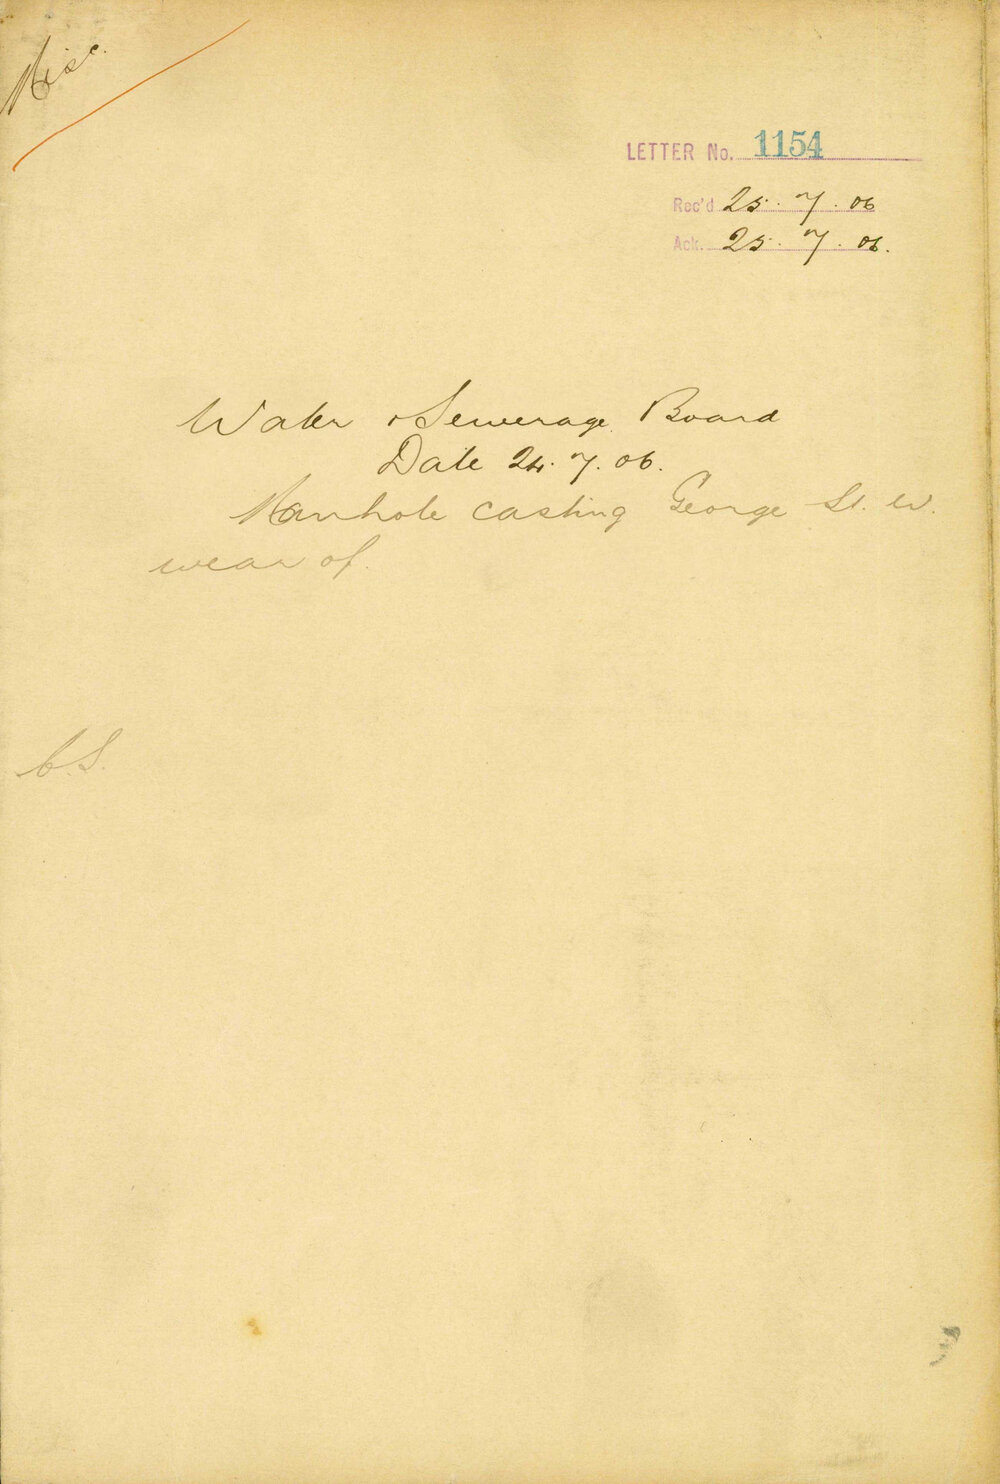 Misc.
LETTER No. 1154
Rec'd 25. 7. 06
Ack. 25. 7. 06.
Water & Sewerage Board
Date 24. 7. 06.
Manhole casting George St. W.
wear of.
C.S.